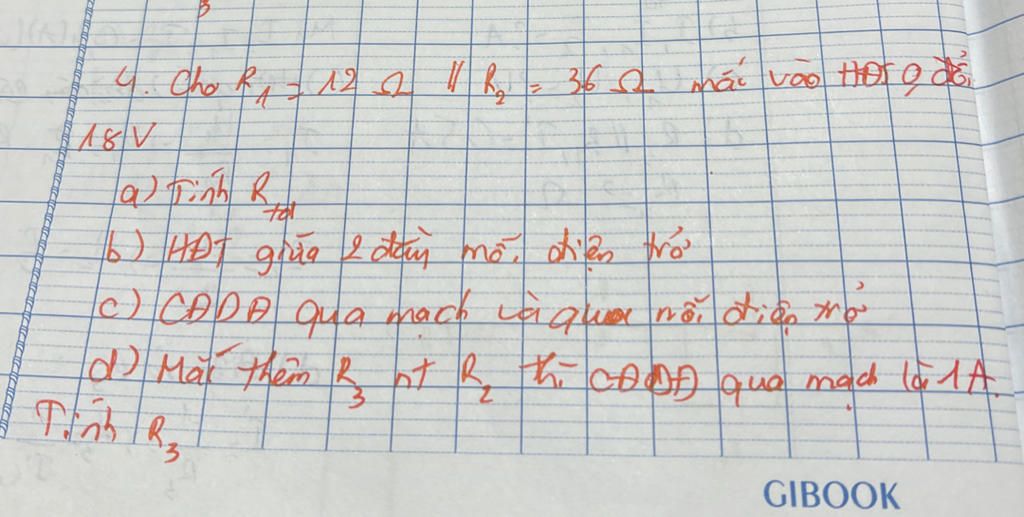 4. Cho R₁ = 12 Ω // R₂ = 36 Ω mắc vào HĐT 0 đổi
18 V
a) Tính R_tđ
b) HĐT giữa 2 đầu mỗi điện trở
c) CĐDĐ qua mạch và qua mỗi điện trở
d) Mắc thêm R₃ nt R₂ thì CĐDĐ qua mạch là 1A.
Tính R₃
GIBOOK